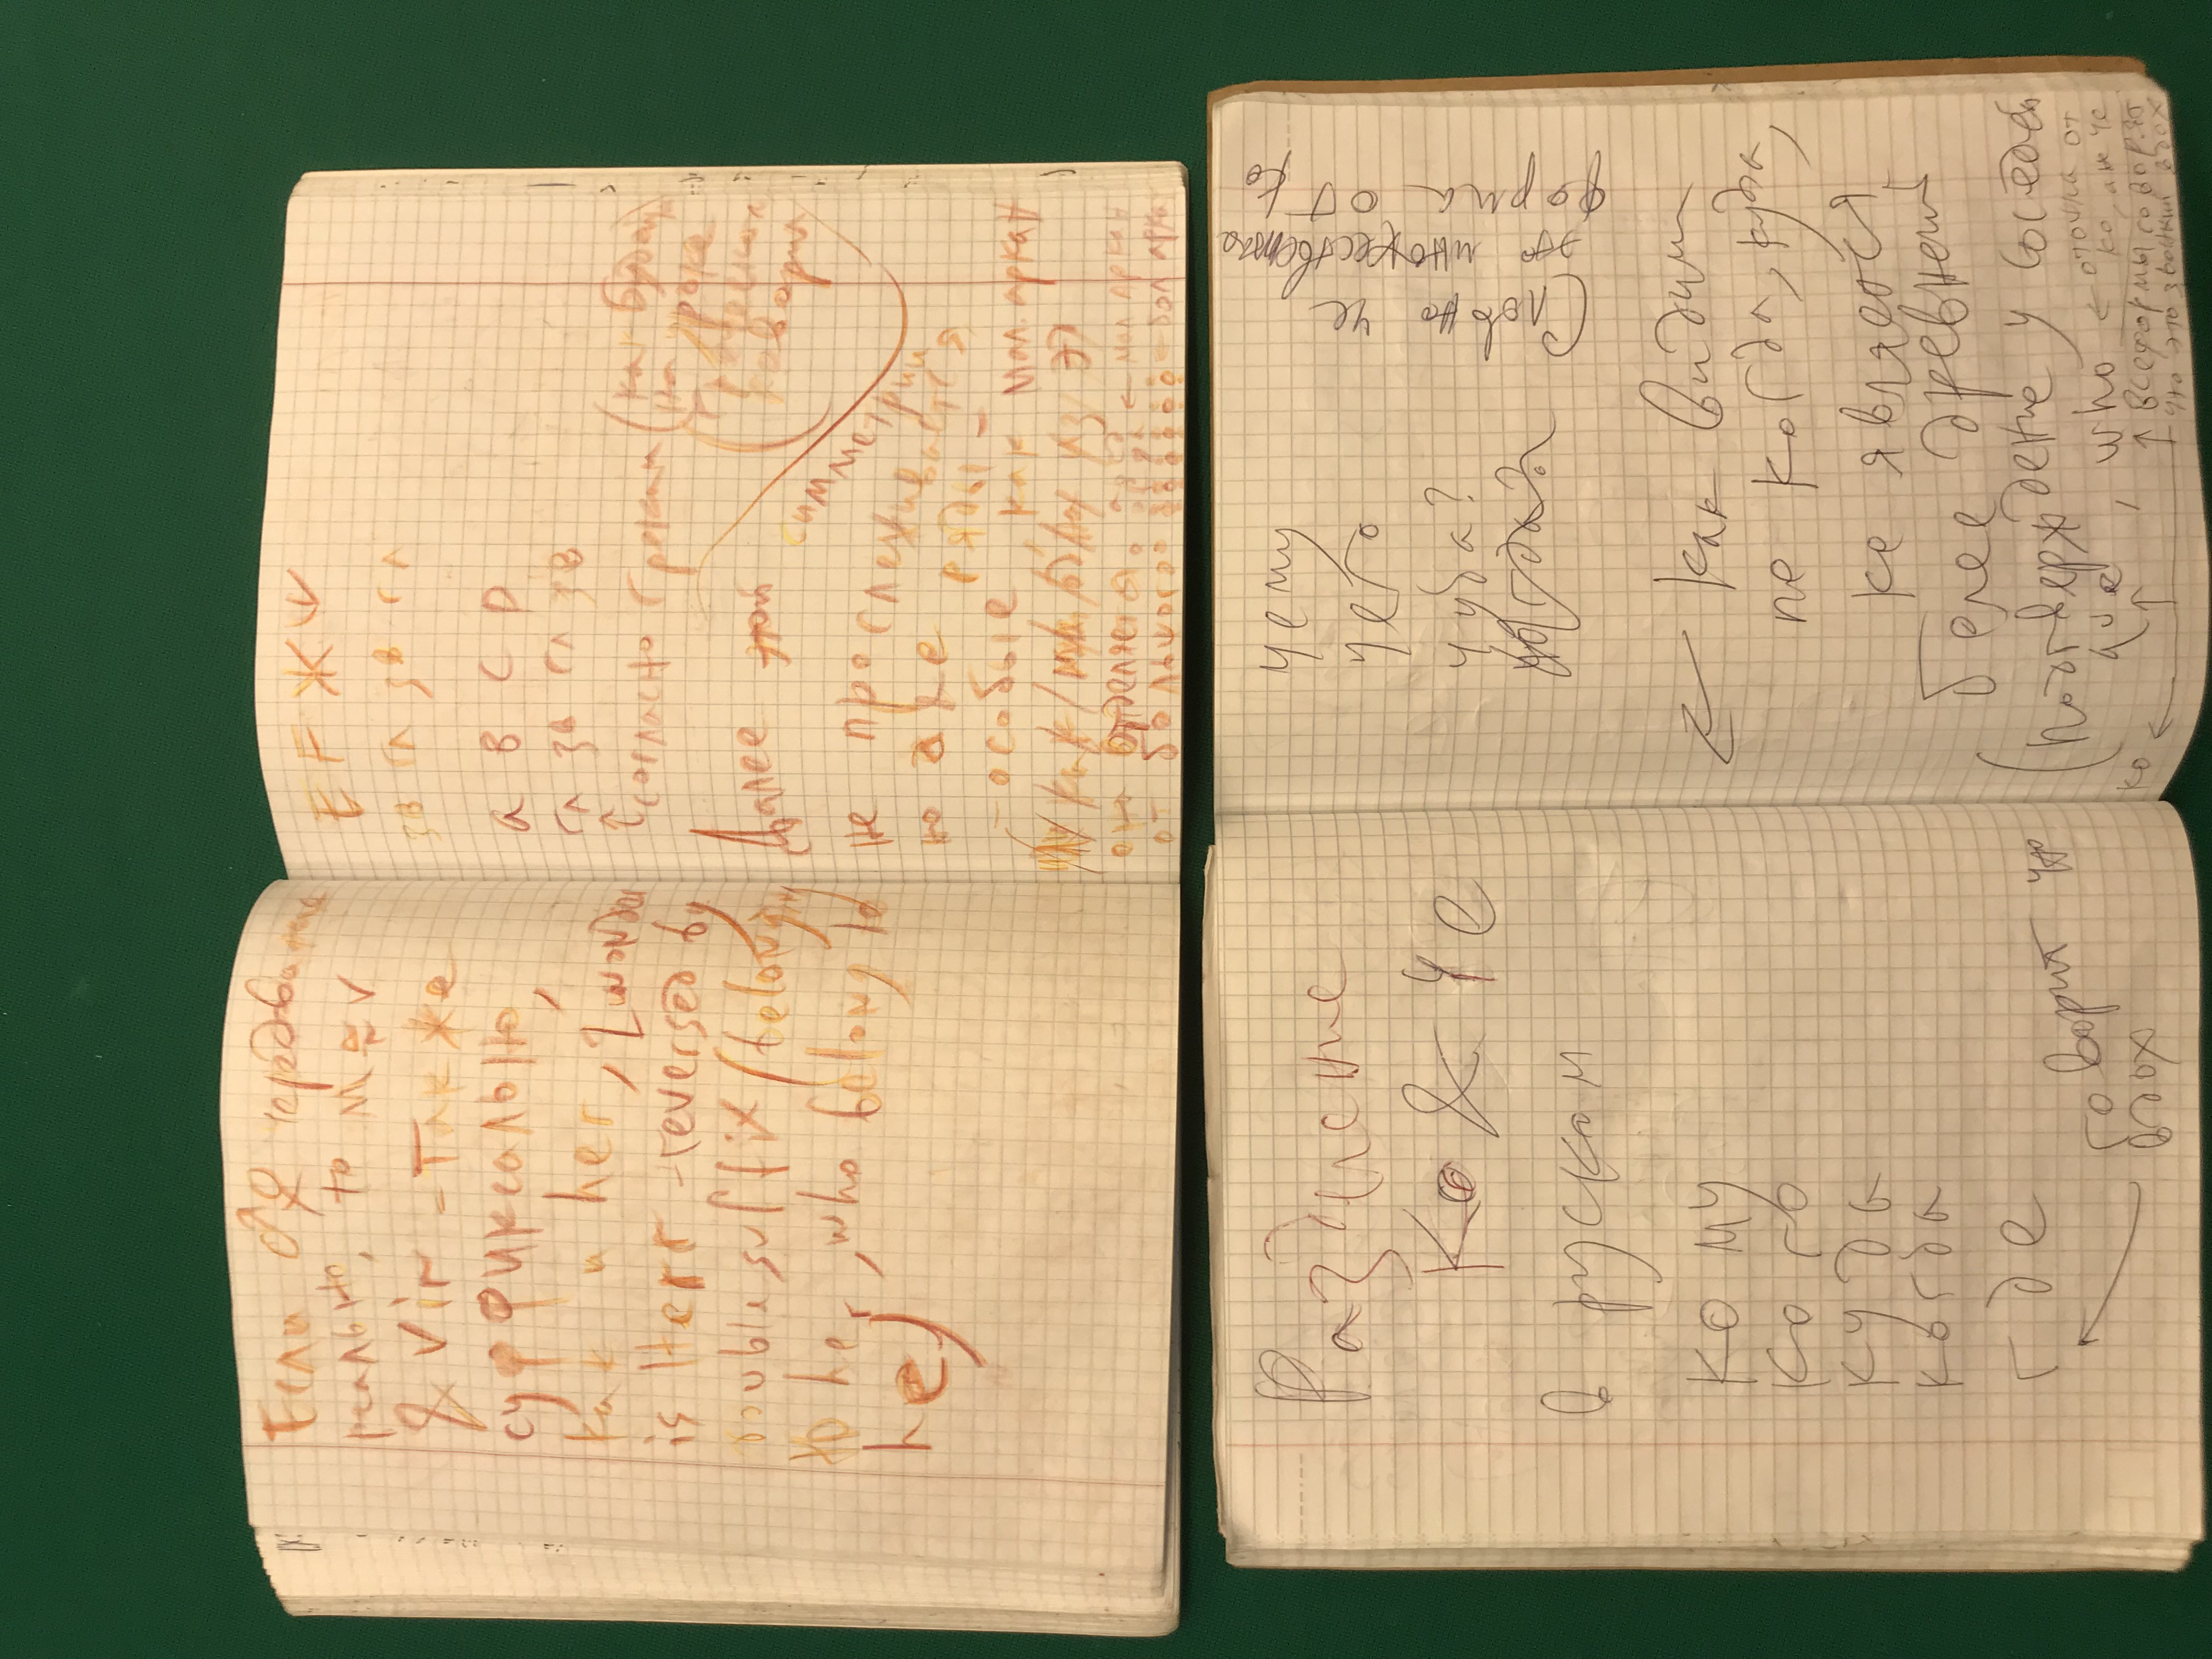 Если ♂♀
реально, то м ≅ v
& vir - также
суффиксально,
как и her, 2
is Herr - reversed by
double suffix (belonging
to her, who belong to
he)
E F Ж V
зв гл зв гл
a B C D
гл зв гл зв
↑ согласно грекам (как будто
на уроке
Далее этой симметрии
не прослеживается
но две ряды -
- особые, как мал. аркан
она отделяется. ← мал аркан
от большого ← бол арка
Разденение
Ко & Че
в руском
кому
кого
куда
когда
где
говорит что
вдох
чему
чего
чуда?
Словно че
это множественная
форма от ко
← как видим
по когда, куда,
ко является
более древней
(подтверждение у соседей
que, who ← оточка от
ко, а не че
ко ← ↑ ↑ все формы говорят
что это звонкий вдох